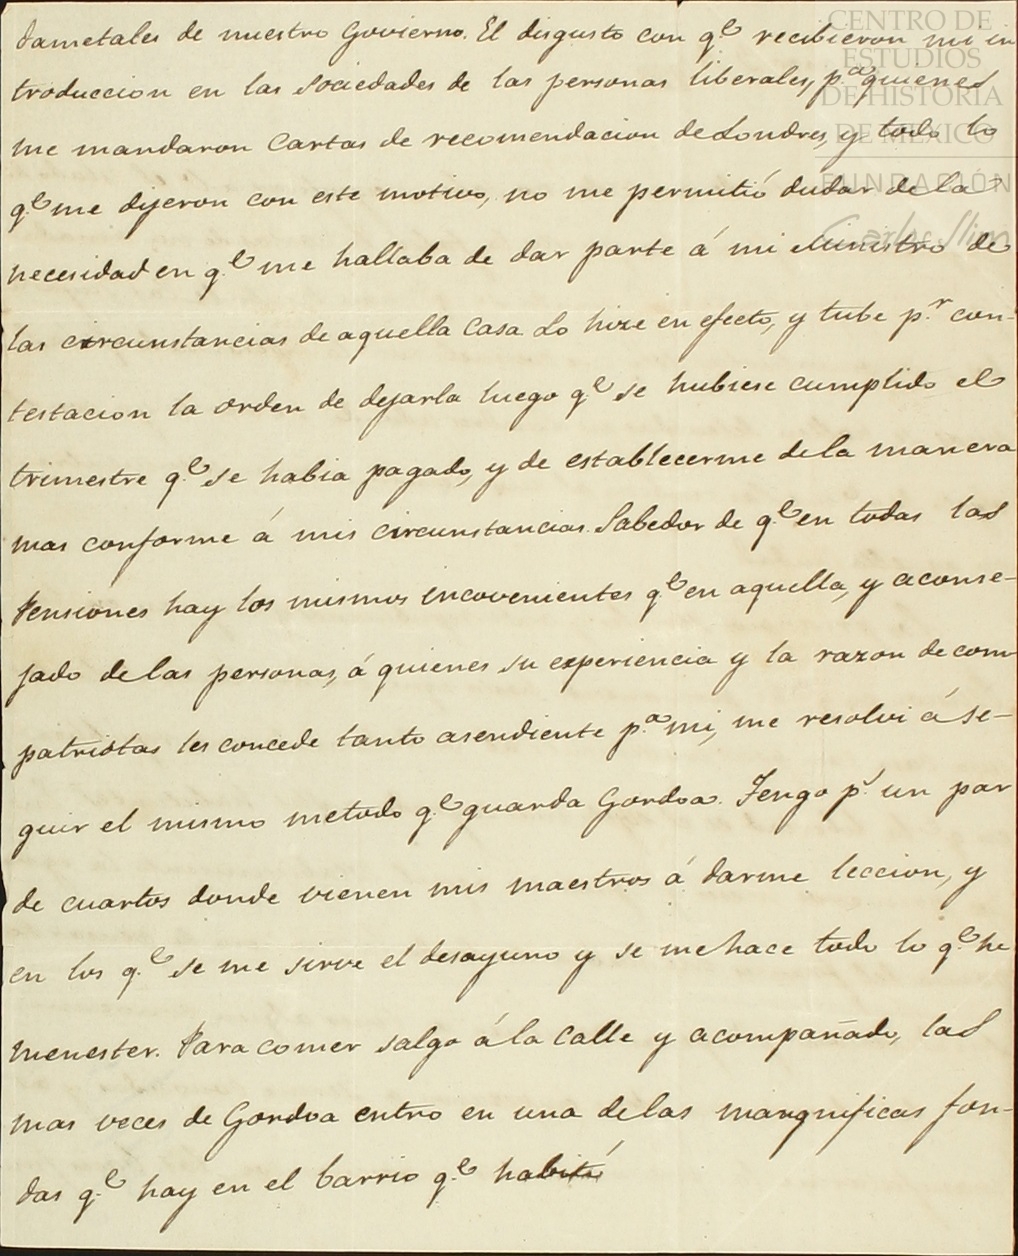 damentales de nuestro Govierno. El disgusto con q.e recibieron mi in
troduccion en las sociedades de las personas liberales, p.a quienes
me mandaron cartas de recomendacion de Londres, y todo lo
q.e me dijeron con este motivo, no me permitió dúdar de la
necesidad en q.e me hallaba de dar parte á mi Ministro de
las circunstancias de aquella casa Lo hize en efecto, y tube p.r con-
testacion la orden de dejarla luego q.e se hubiese cumplido el
trimestre q.e se habia pagado, y de establecerme de la manera
mas conforme á mis circunstancias. Sabedor de q.e en todas las
Pensiones hay los mismos incovenientes q.e en aquella, y aconse-
jado de las personas, á quienes su experiencia y la razon de com
patriotas les concede tanto asendiente p.a mi, me resolvi á se-
guir el mismo metodo q.e guarda Gordoa. Tengo p.s un par
de cuartos donde vienen mis maestros á darme leccion, y
en los q.e se me sirve el desayuno y se me hace todo lo q.e he
menester. Para comer salgo á la calle y acompañado, las
mas veces de Gordoa entro en una de las mangnificas fon-
das q.e hay en el barrio q.e habitó
CENTRO DE
ESTUDIOS
DE HISTORIA
DE MÉXICO
FUNDACIÓN
Carlos Slim